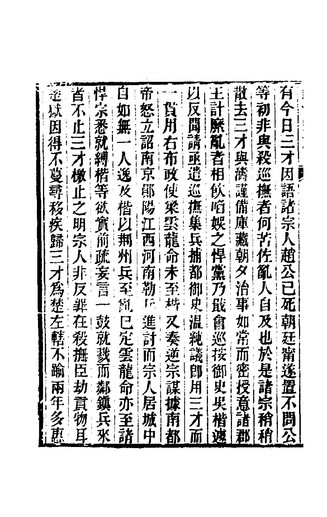 有今日三才因語諸宗人趙公已死朝廷甯遂置不問公
等初非與殺巡撫者何苦佐亂人自及也於是諸宗稍稍
散去三才與濟謹備庫藏朝夕治事如常而密授意諸郡
王計縻亂者相飲啗娛之悍黨乃戢會巡按御史吳楷遽
以反聞請亟遣巡撫集兵捕都御史溫純議卽用三才而
一貫用右布政使梁雲龍命未至楷又奏逆宗謀據南都
帝怒立詔南京鄖陽江西河南勒兵進討而宗人居城中
自如無一人逸及楷以荆州兵至亂已定雲龍命亦至諸
悍宗悉就縛楷等欲實前疏妄言一鼓就戮而鄰鎮兵來
者不止三才檄止之明宗人非反罪在殺撫臣劫貢物耳
獄因得不蔓尋移疾歸三才爲楚左轄不踰兩年多惠